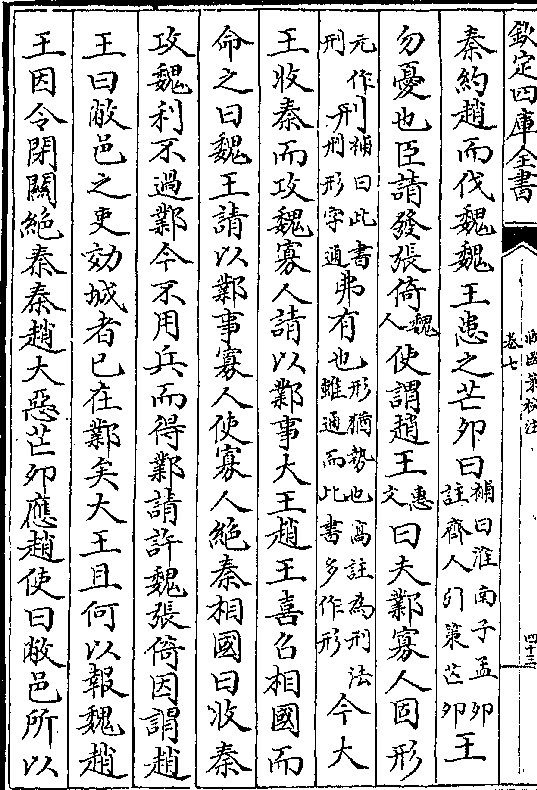 欽定四庫全書
戰國策校注
卷七
四十三
秦約趙而伐魏魏王患之芒卯曰補曰淮南子孟卯註齊人引策芒卯王
勿憂也臣請發張倚魏人使謂趙王惠文曰夫鄴寡人固形
元作刑刑補曰此書刑形字通弗有也形猶勢也高註為刑法雖通而此書多作形今大
王收秦而攻魏寡人請以鄴事大王趙王喜召相國而
命之曰魏王請以鄴事寡人使寡人絶秦相國曰收秦
攻魏利不過鄴今不用兵而得鄴請許魏張倚因謂趙
王曰敝邑之吏効城者已在鄴矣大王且何以報魏趙
王因令閉關絶秦秦趙大惡芒卯應趙使曰敝邑所以